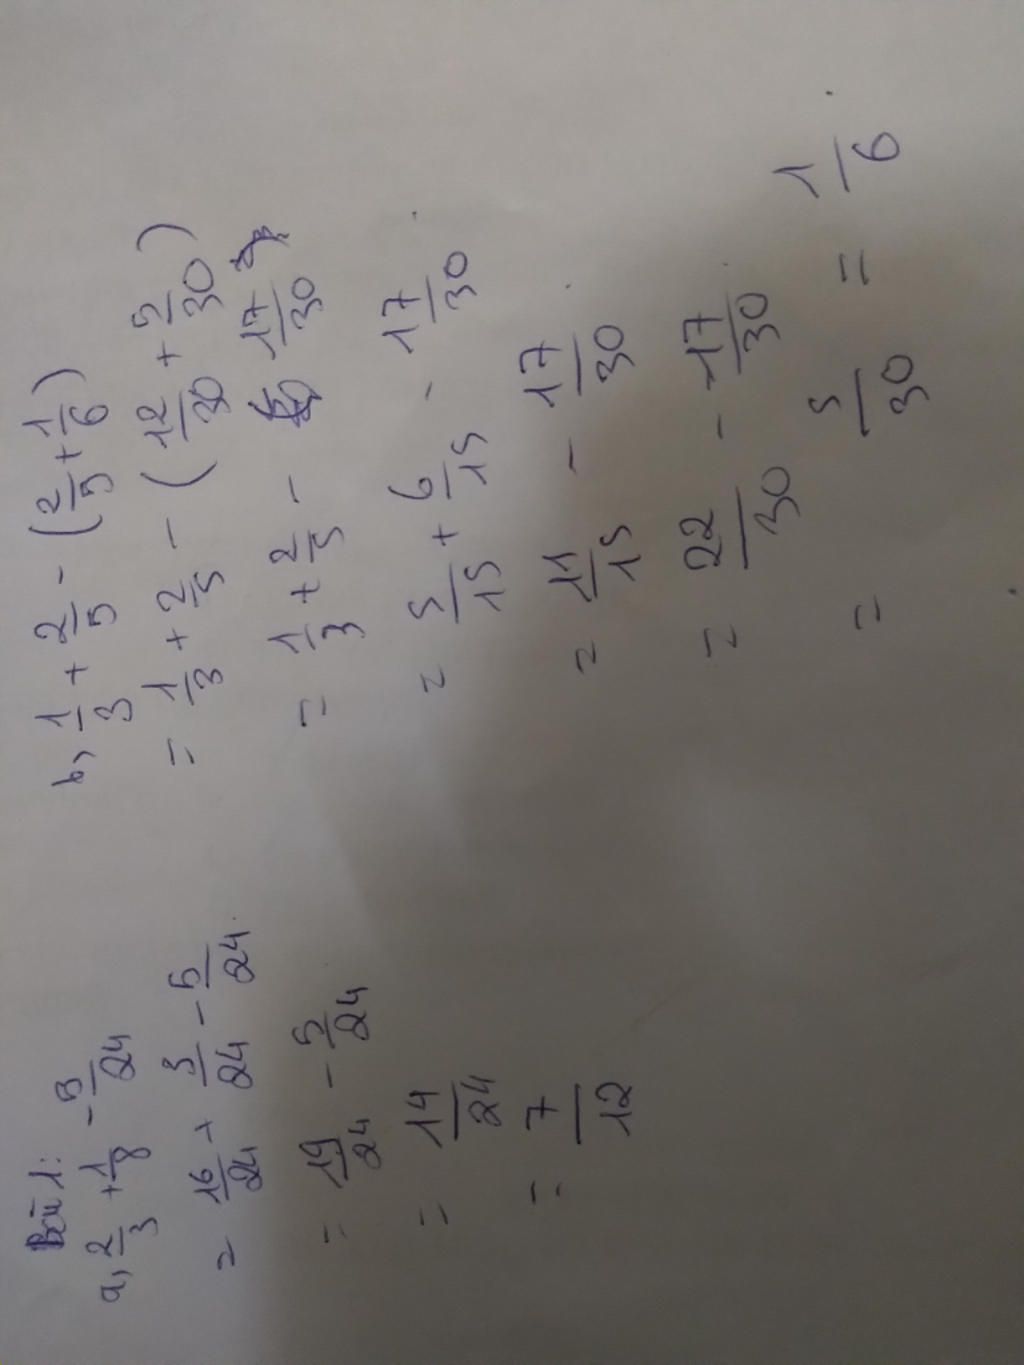 Bài 1:
a, 2/3 + 1/8 - 5/24
= 16/24 + 3/24 - 5/24
= 19/24 - 5/24
= 14/24
= 7/12
b, 1/3 + 2/5 - (2/5 + 1/6)
= 1/3 + 2/5 - (12/30 + 5/30)
= 1/3 + 2/5 - 17/30
= 5/15 + 6/15 - 17/30
= 11/15 - 17/30
= 22/30 - 17/30
= 5/30 = 1/6